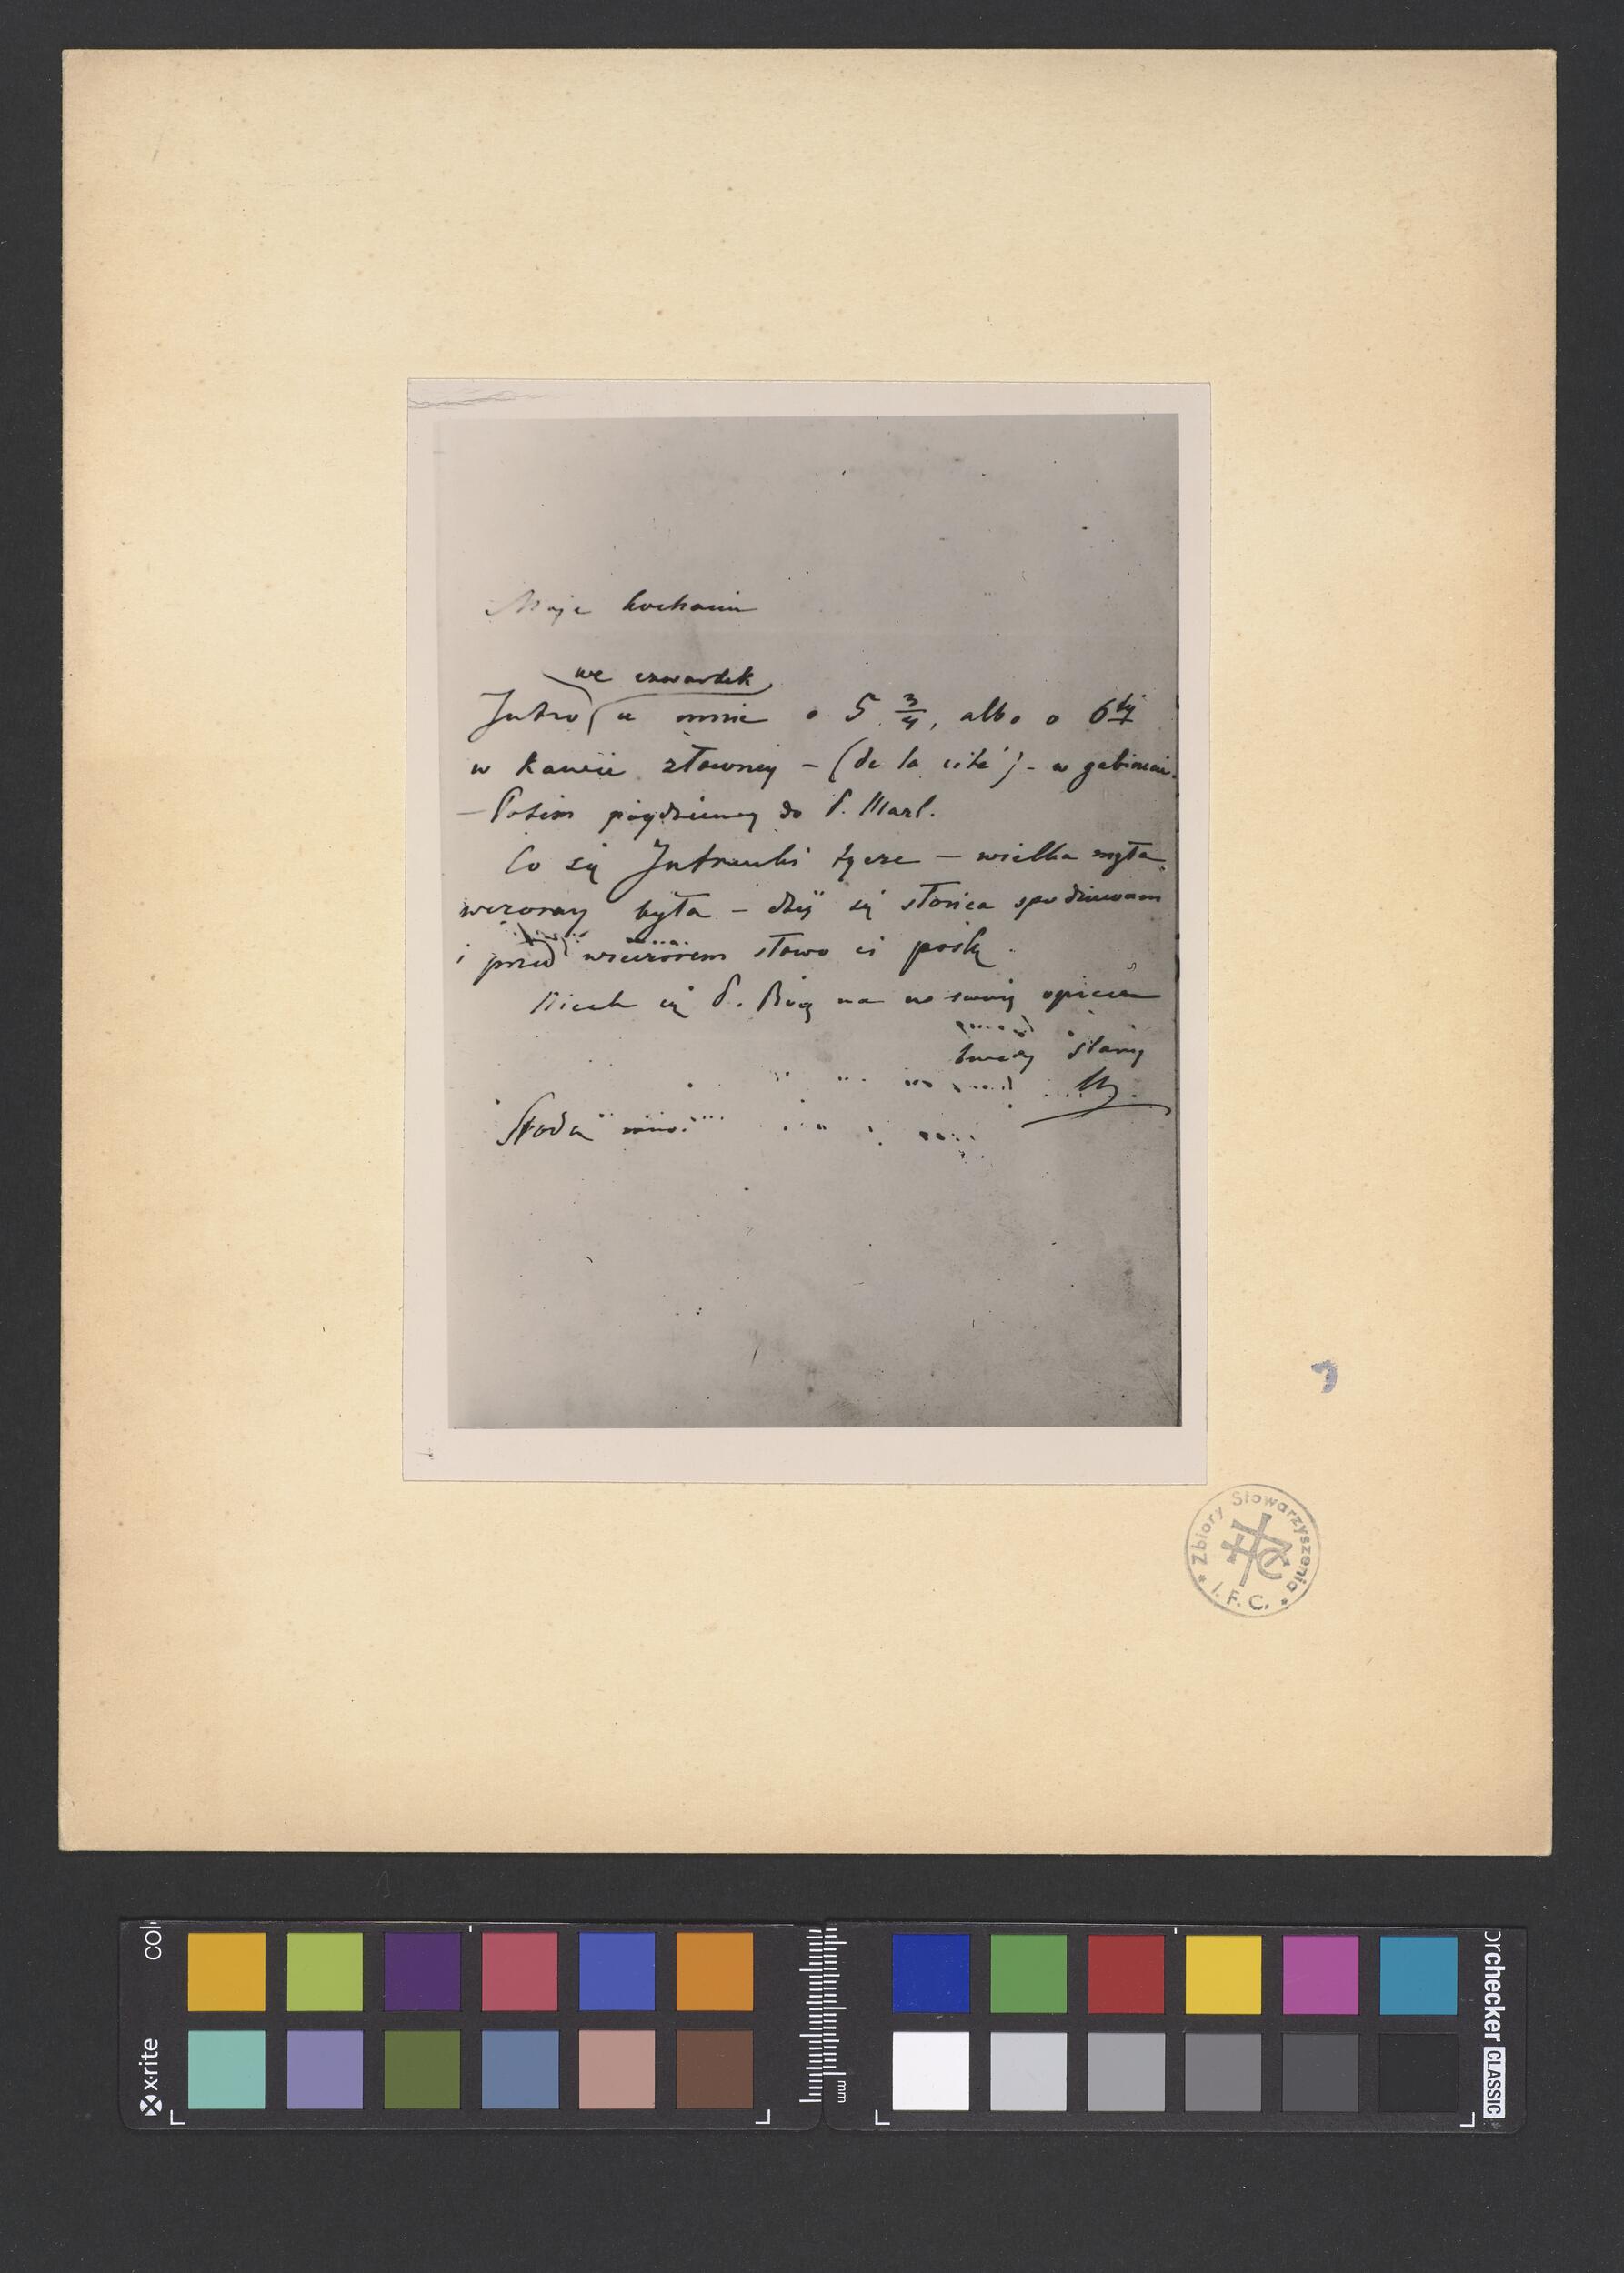 Moje kochanie
we czwartek
Jutro u mnie o 5 3/4, albo o 6tej
w kamie złowney – (de la cité) – w gabinecie.
– Potem pójdziemy do P. Marl.
Co się Jutrzenki tycze – wielka mgła
wczoray była – dziś się słońca spodziewam
i przed wieczorem słowo ci poślę.
Niech cię P. Bóg ma w swoiej opiece
twóy stary
Środa
Zbiory Stowarzyszenia
I. F. C.
x·rite
colorchecker CLASSIC
mm